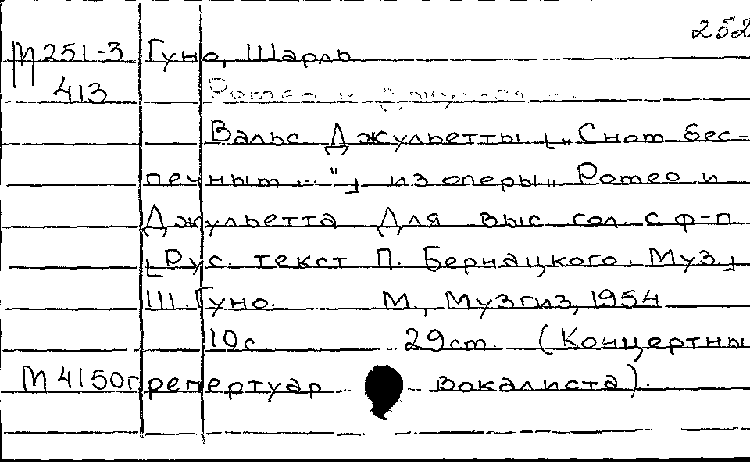 252
М 251-3 Гуно, Шарль
413 Ромео и Джульетта
Вальс Джульетты [„Сном бес-
печным..."] из оперы „Ромео и
Джульетта Для выс гол. с ф-п
[Рус. текст П. Бернацкого. Муз.]
Ш. Гуно. М., Музгиз, 1954
10с 29ст. (Концертны
М 4150г репертуар вокалиста).